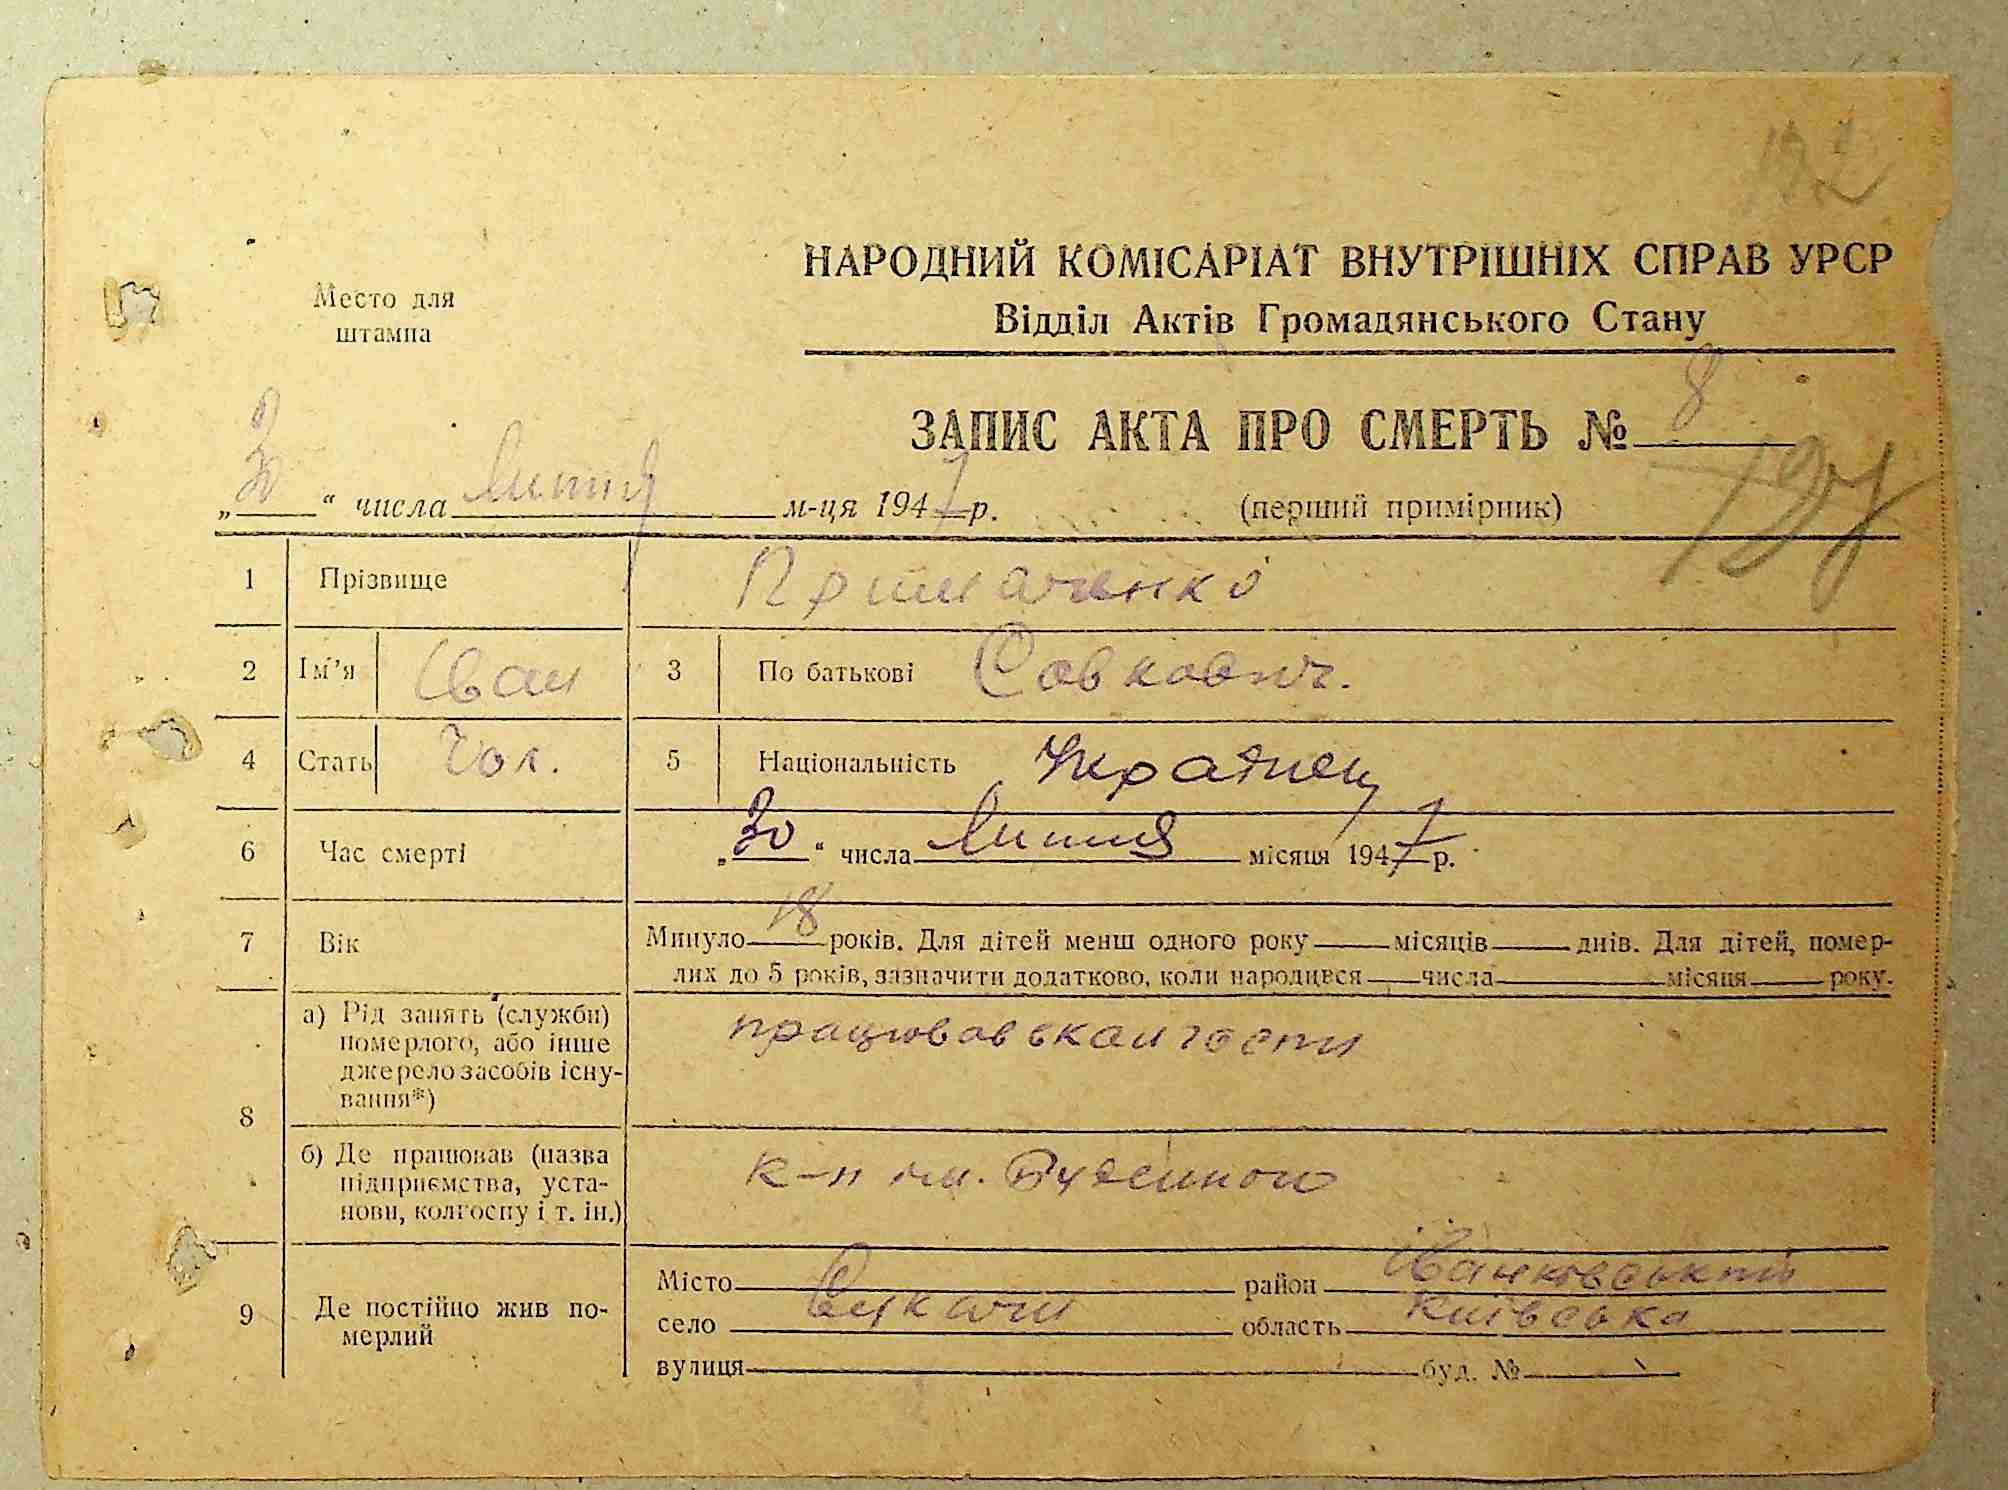 192
НАРОДНИЙ КОМІСАРІАТ ВНУТРІШНІХ СПРАВ УРСР
Место для
штампа
Відділ Актів Громадянського Стану
ЗАПИС АКТА ПРО СМЕРТЬ № 8
„30“ числа Липня м-ця 1947 р. (перший примірник)
1 Прізвище Примаченко
2 Ім’я Іван 3 По батькові Савкович.
4 Стать Чол. 5 Національність Українец
6 Час смерті „30“ числа Липня місяця 1947 р.
7 Вік Минуло 18 років. Для дітей менш одного року місяців днів. Для дітей, помер-
лих до 5 років, зазначити додатково, коли народився числа місяця року.
8 а) Рід занять (служби)
померлого, або інше
джерело засобів існу-
вання*)
працював
б) Де працював (назва
підприємства, уста-
нови, колгоспу і т. ін.)
к-п ім. Будённого
9 Де постійно жив по-
мерлий
Місто район Іванковський
село Сукачи область Київська
вулиця буд. №